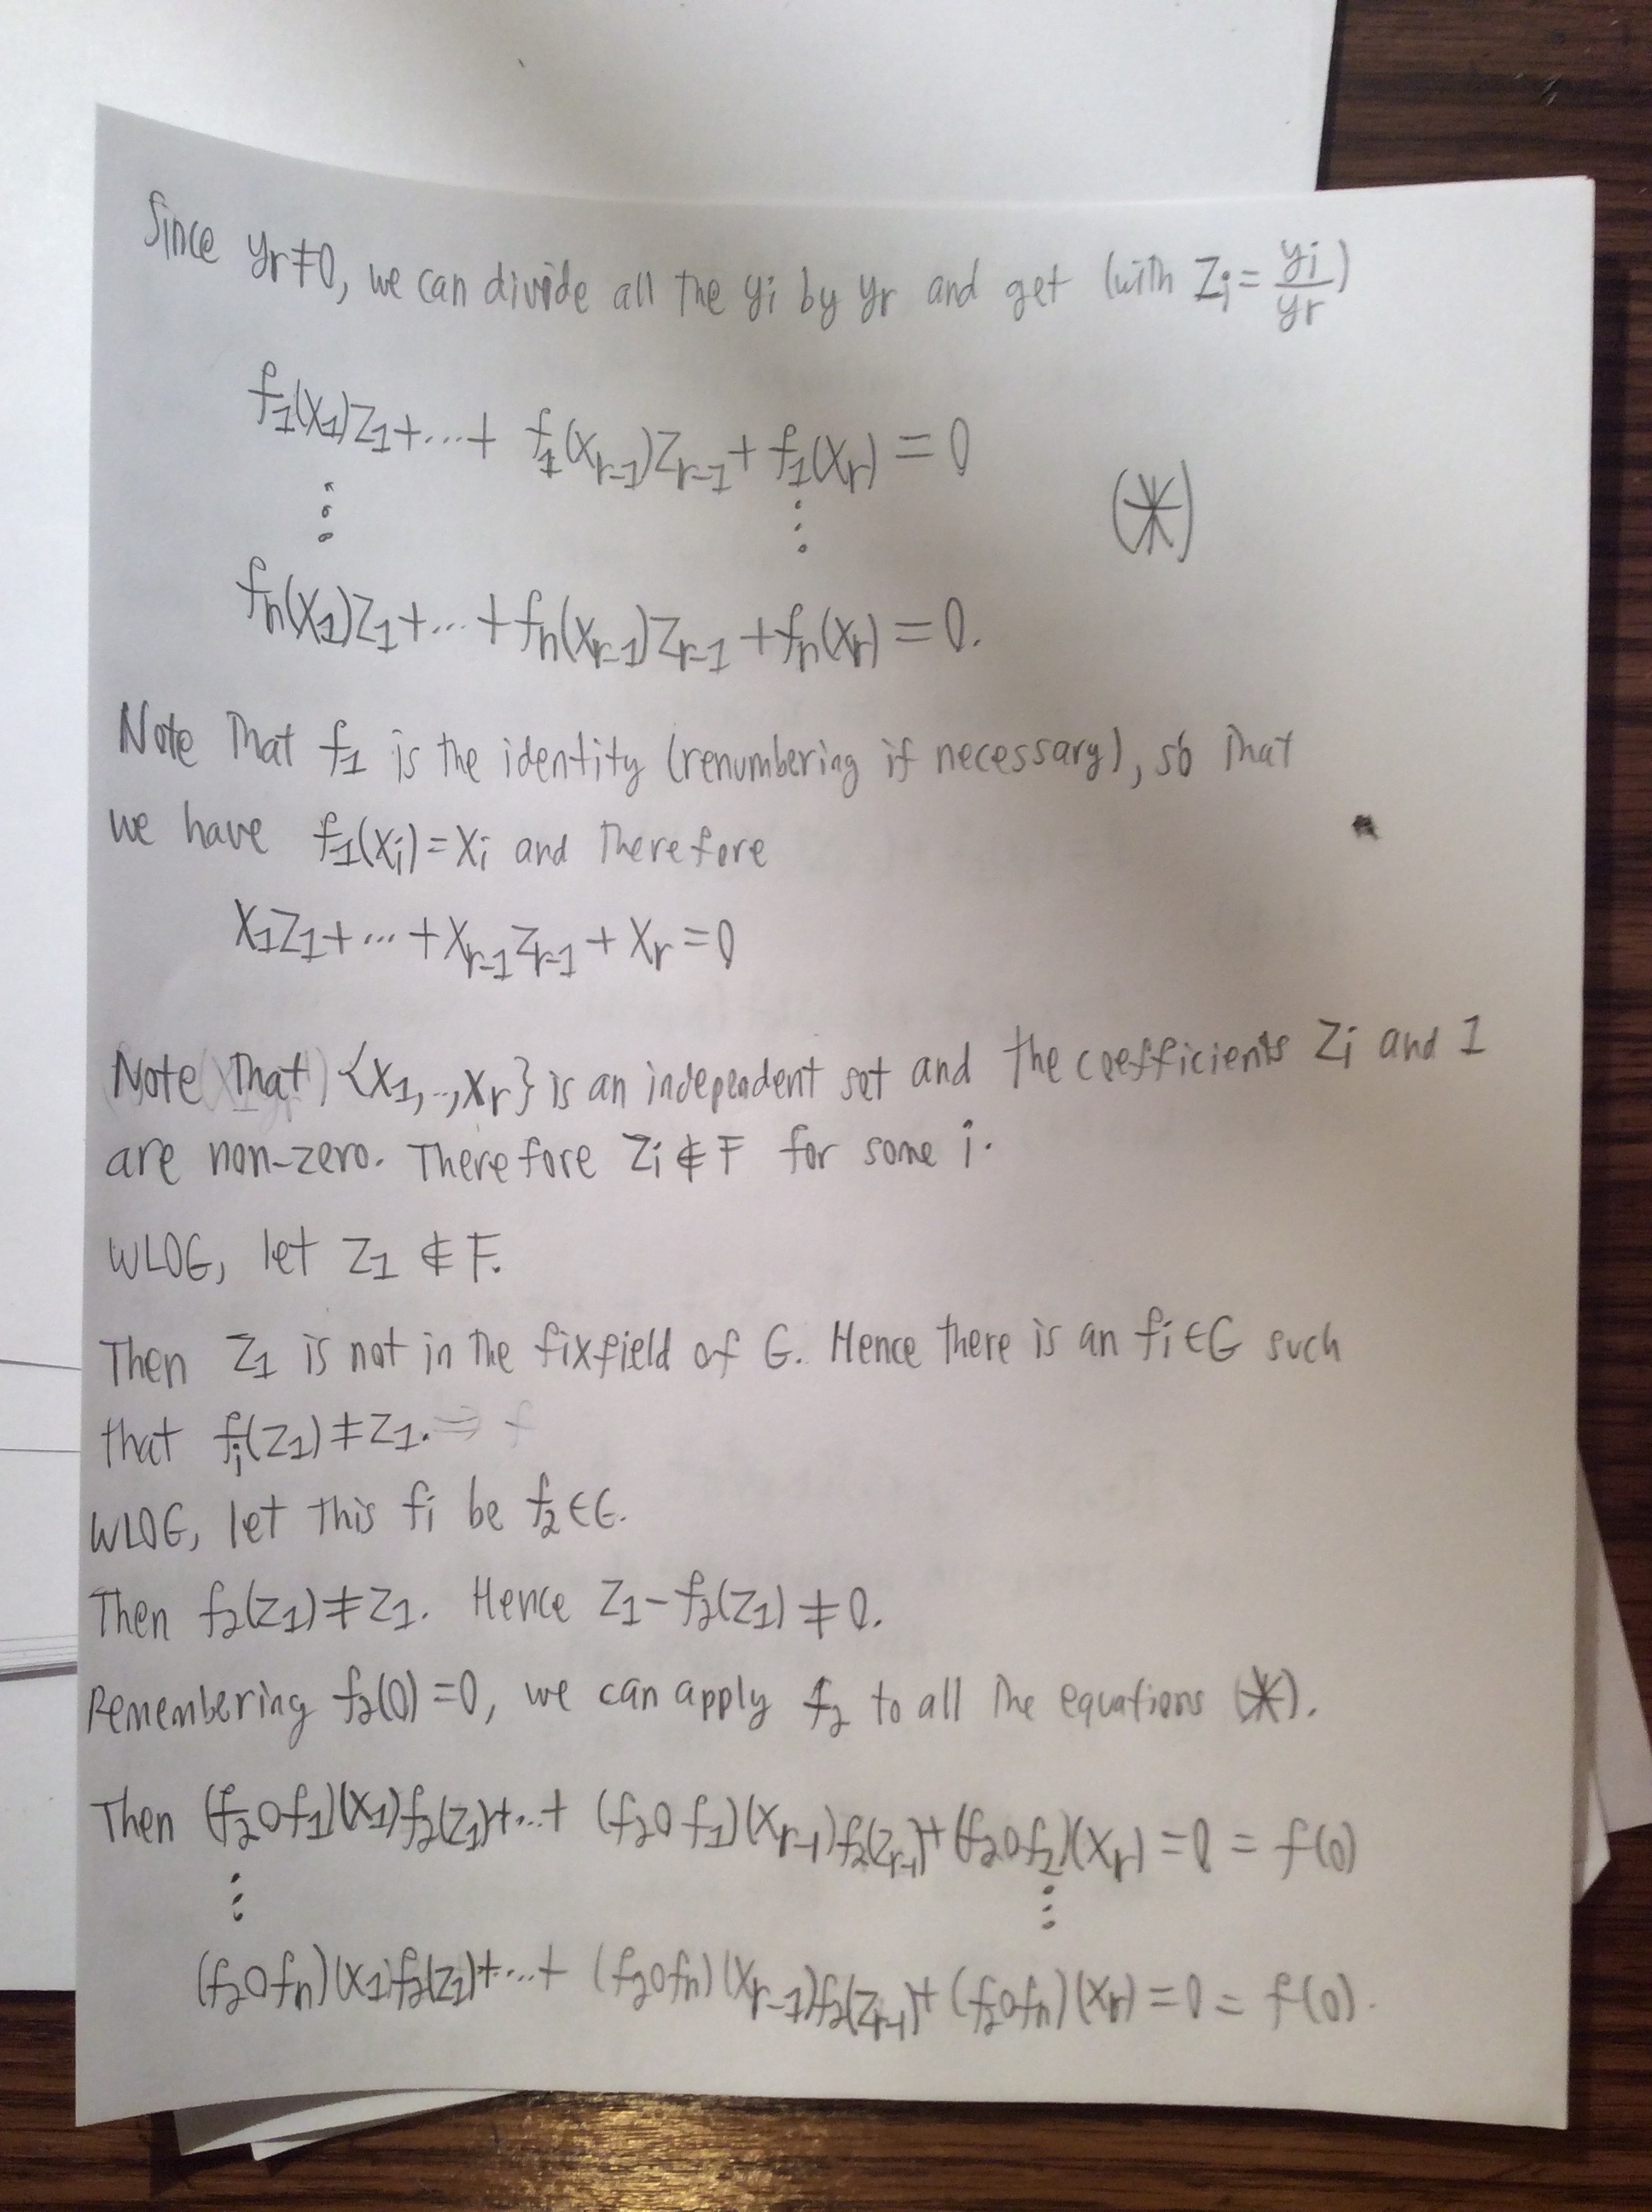 Since yr≠0, we can divide all the yi by yr and get (with Zi = yi/yr)
f1(x1)z1+...+ f1(xr-1)zr-1+f1(xr) = 0
⋮ ⋮ (*)
fn(x1)z1+...+fn(xr-1)zr-1+fn(xr) = 0.
Note That f1 is the identity (renumbering if necessary), so That
we have f1(xi)=xi and Therefore
x1z1+...+xr-1zr-1+xr=0
Note That {x1,..,xr} is an independent set and the coefficients Zi and 1
are non-zero. Therefore Zi ∉ F for some i.
WLOG, let z1 ∉ F.
Then z1 is not in the fixfield of G. Hence there is an fi∈G such
that fi(z1)≠z1. ⇒ f
WLOG, let this fi be f2∈G.
Then f2(z1)≠z1. Hence z1-f2(z1)≠0.
Remembering f2(0)=0, we can apply f2 to all the equations (*).
Then (f2∘f1)(x1)f2(z1)+...+ (f2∘f1)(xr-1)f2(zr-1)+(f2∘f2)(xr) = 0 = f(0)
⋮ ⋮
(f2∘fn)(x1)f2(z1)+...+ (f2∘fn)(xr-1)f2(zr-1)+(f2∘fn)(xr) = 0 = f(0).